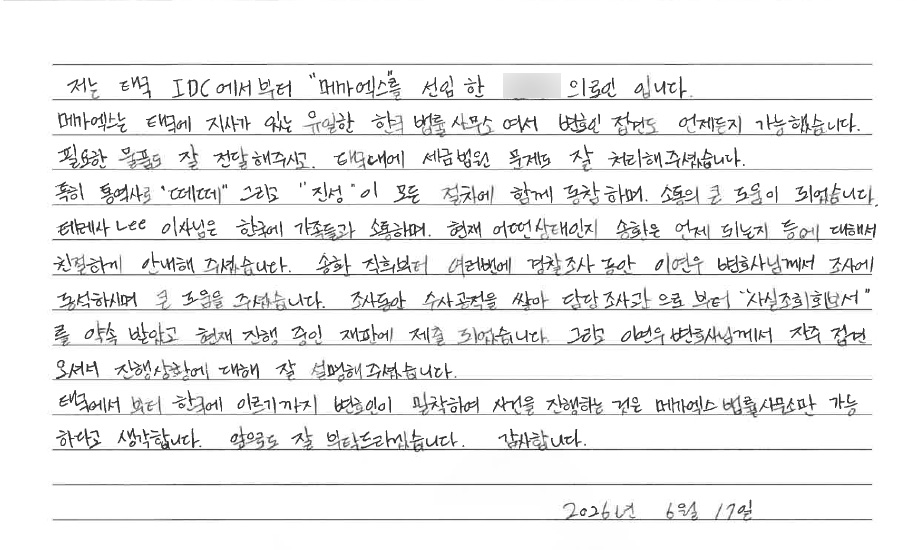 저는 태국 IDC에서부터 "메가엑스"를 선임한 의뢰인 입니다.
메가엑스는 태국에 지사가 있는 유일한 한국 법률사무소 여서 변호인 접견도 언제든지 가능했습니다.
필요한 물품도 잘 전달해주시고. 태국내에 세금법원 문제도 잘 처리해주셨습니다.
특히 통역사로 "떼떼" 그리고 "진성"이 모든 절차에 함께 동참하며. 소통의 큰 도움이 되었습니다.
테레사 Lee 이사님은 한국에 가족들과 소통하며. 현재 어떤상태인지 송환은 언제 되는지 등에 대해서
친절하게 안내해 주셨습니다. 송환 직후부터 여러번에 경찰조사 동안 이연우 변호사님께서 조사에
동석하시며 큰 도움을 주셨습니다. 조사동안 수사공적을 쌓아 담당조사관 으로 부터 "사실조회회보서"
를 약속 받았고 현재 진행 중인 재판에 제출 되었습니다. 그리고 이연우변호사님께서 자주 접견
오셔서 진행상황에 대해 잘 설명해주셨습니다.
태국에서 부터 한국에 이르기까지 변호인이 밀착하여 사건을 진행하는 것은 메가엑스 법률사무소만 가능
하다고 생각합니다. 앞으로도 잘 부탁드리겠습니다. 감사합니다.
2026년 6월 17일